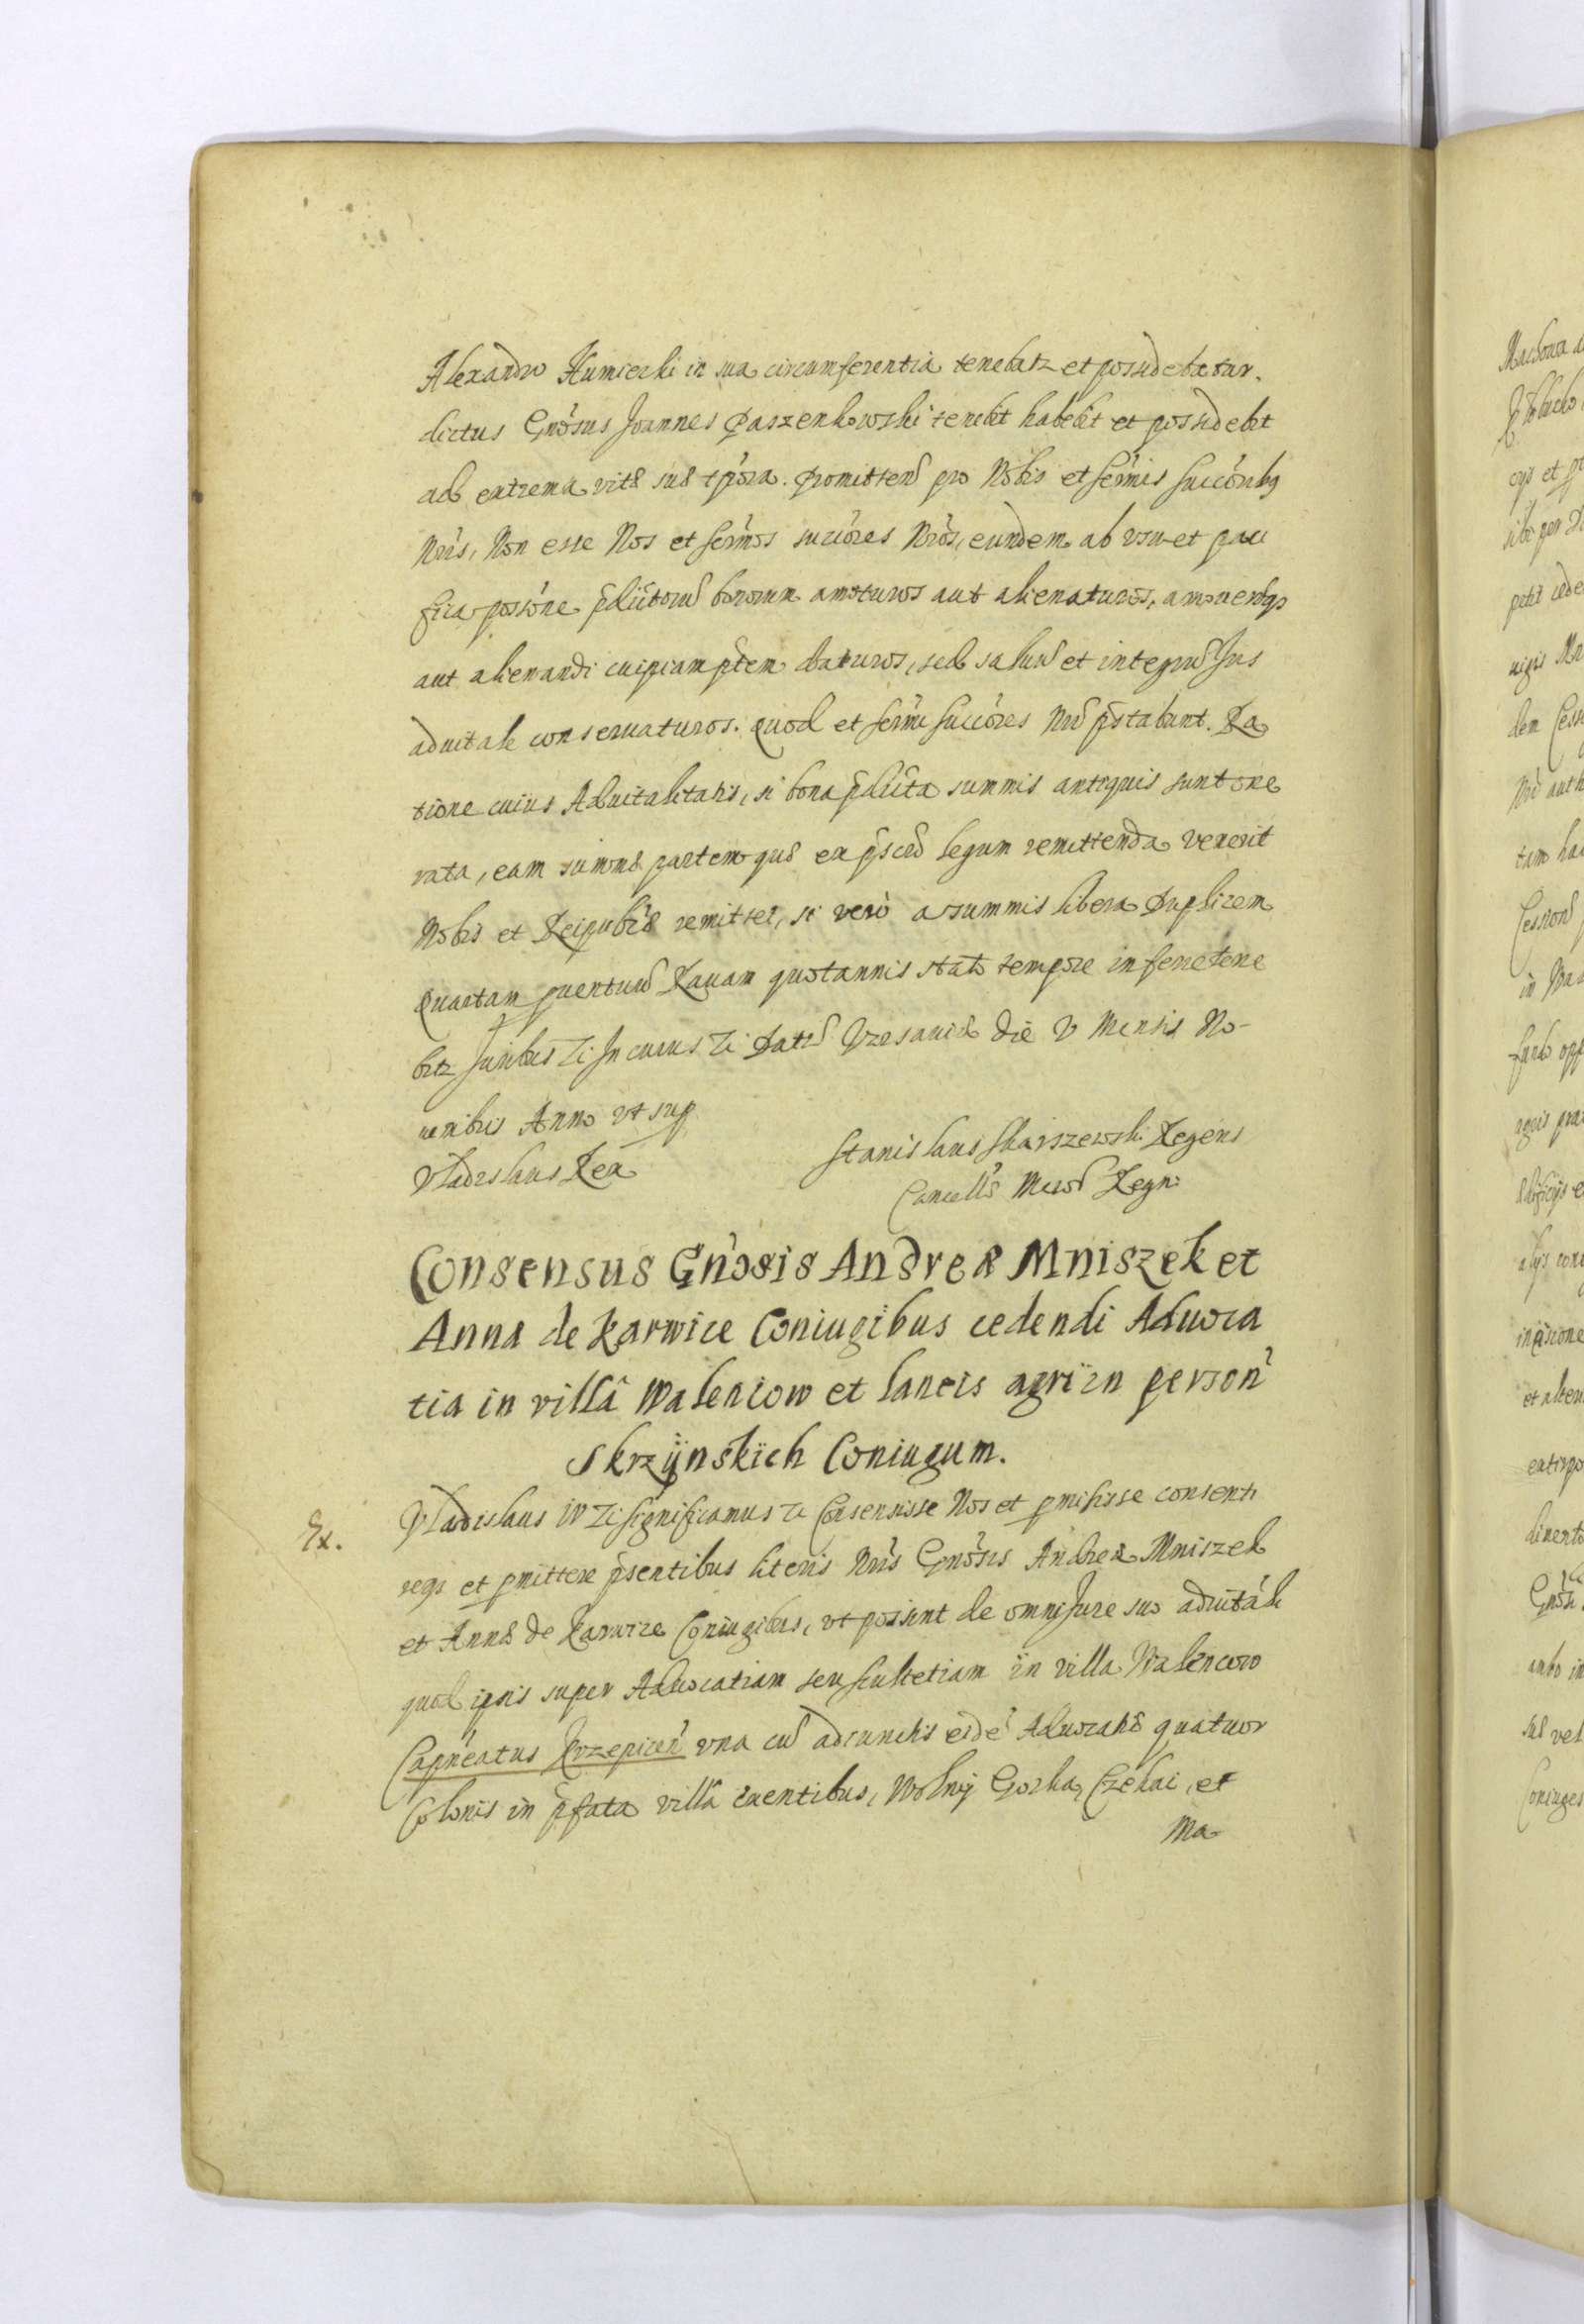 Alexandro Humiecki in sua circumferentia tenebatr et possidebatur.
dictus Gnosus Joannes Paszenkowski tenebit habebit et possidebit
ad extrema vitæ suæ tpora. Promitten pro Nobis et sermis succoribq
Nris, Non esse Nos et sermos succores Nros, eundem ab vsu et paci
fica possone pdictoru bonorum amoturos aut alienaturos, amovendiqs
aut alienandi cuipiam ptem daturos, sed saluu et integru Jus
aduitale conseruaturos. Quod et sermi succores Nri pstabunt. Ra
tione cuius Aduitalitatis, si bona pdicta summis antiquis sunt one
rata, eam summæ partem quæ ex pscro legum remittenda venerit
Nobis et Reipublæ remittet, si vero a summis libera Duplicem
Quartam puentuu Ravam quotannis stato tempore inferre tene
bitr Juribus Zi In cuius Zi Datu Vrsaviæ Die V Mensis No-
uembris Anno vt sup
Vladislaus Rex
Stanislaus Skarszewski Regens
Cancell Mior Regni
Consensus Gnosis Andreæ Mniszek et
Anna de Karwice Coniugibus cedendi Aduoca
tia in villâ Waleniow et laneis agri in person
Skrzÿnskich Coniugum.
Ex.
Vladislaus IV Zi significamus Zi Consensisse Nos et pmisisse consenti
reqs et pmittere psentibus literis Nris Gnosis Andreæ Mniszek
et Annæ de Karwice Coniugibus, vt possint de omni Jure suo aduitali
quod ipsis super Aduocatiam seu scultetiam in villa Walencow
Capneatus Krzepicen vna cu adiunctis eide Aduocatiæ quatuor
Colonis in pfata villâ exentibus, Wolnij Gorka, Czekai, et
Ma-